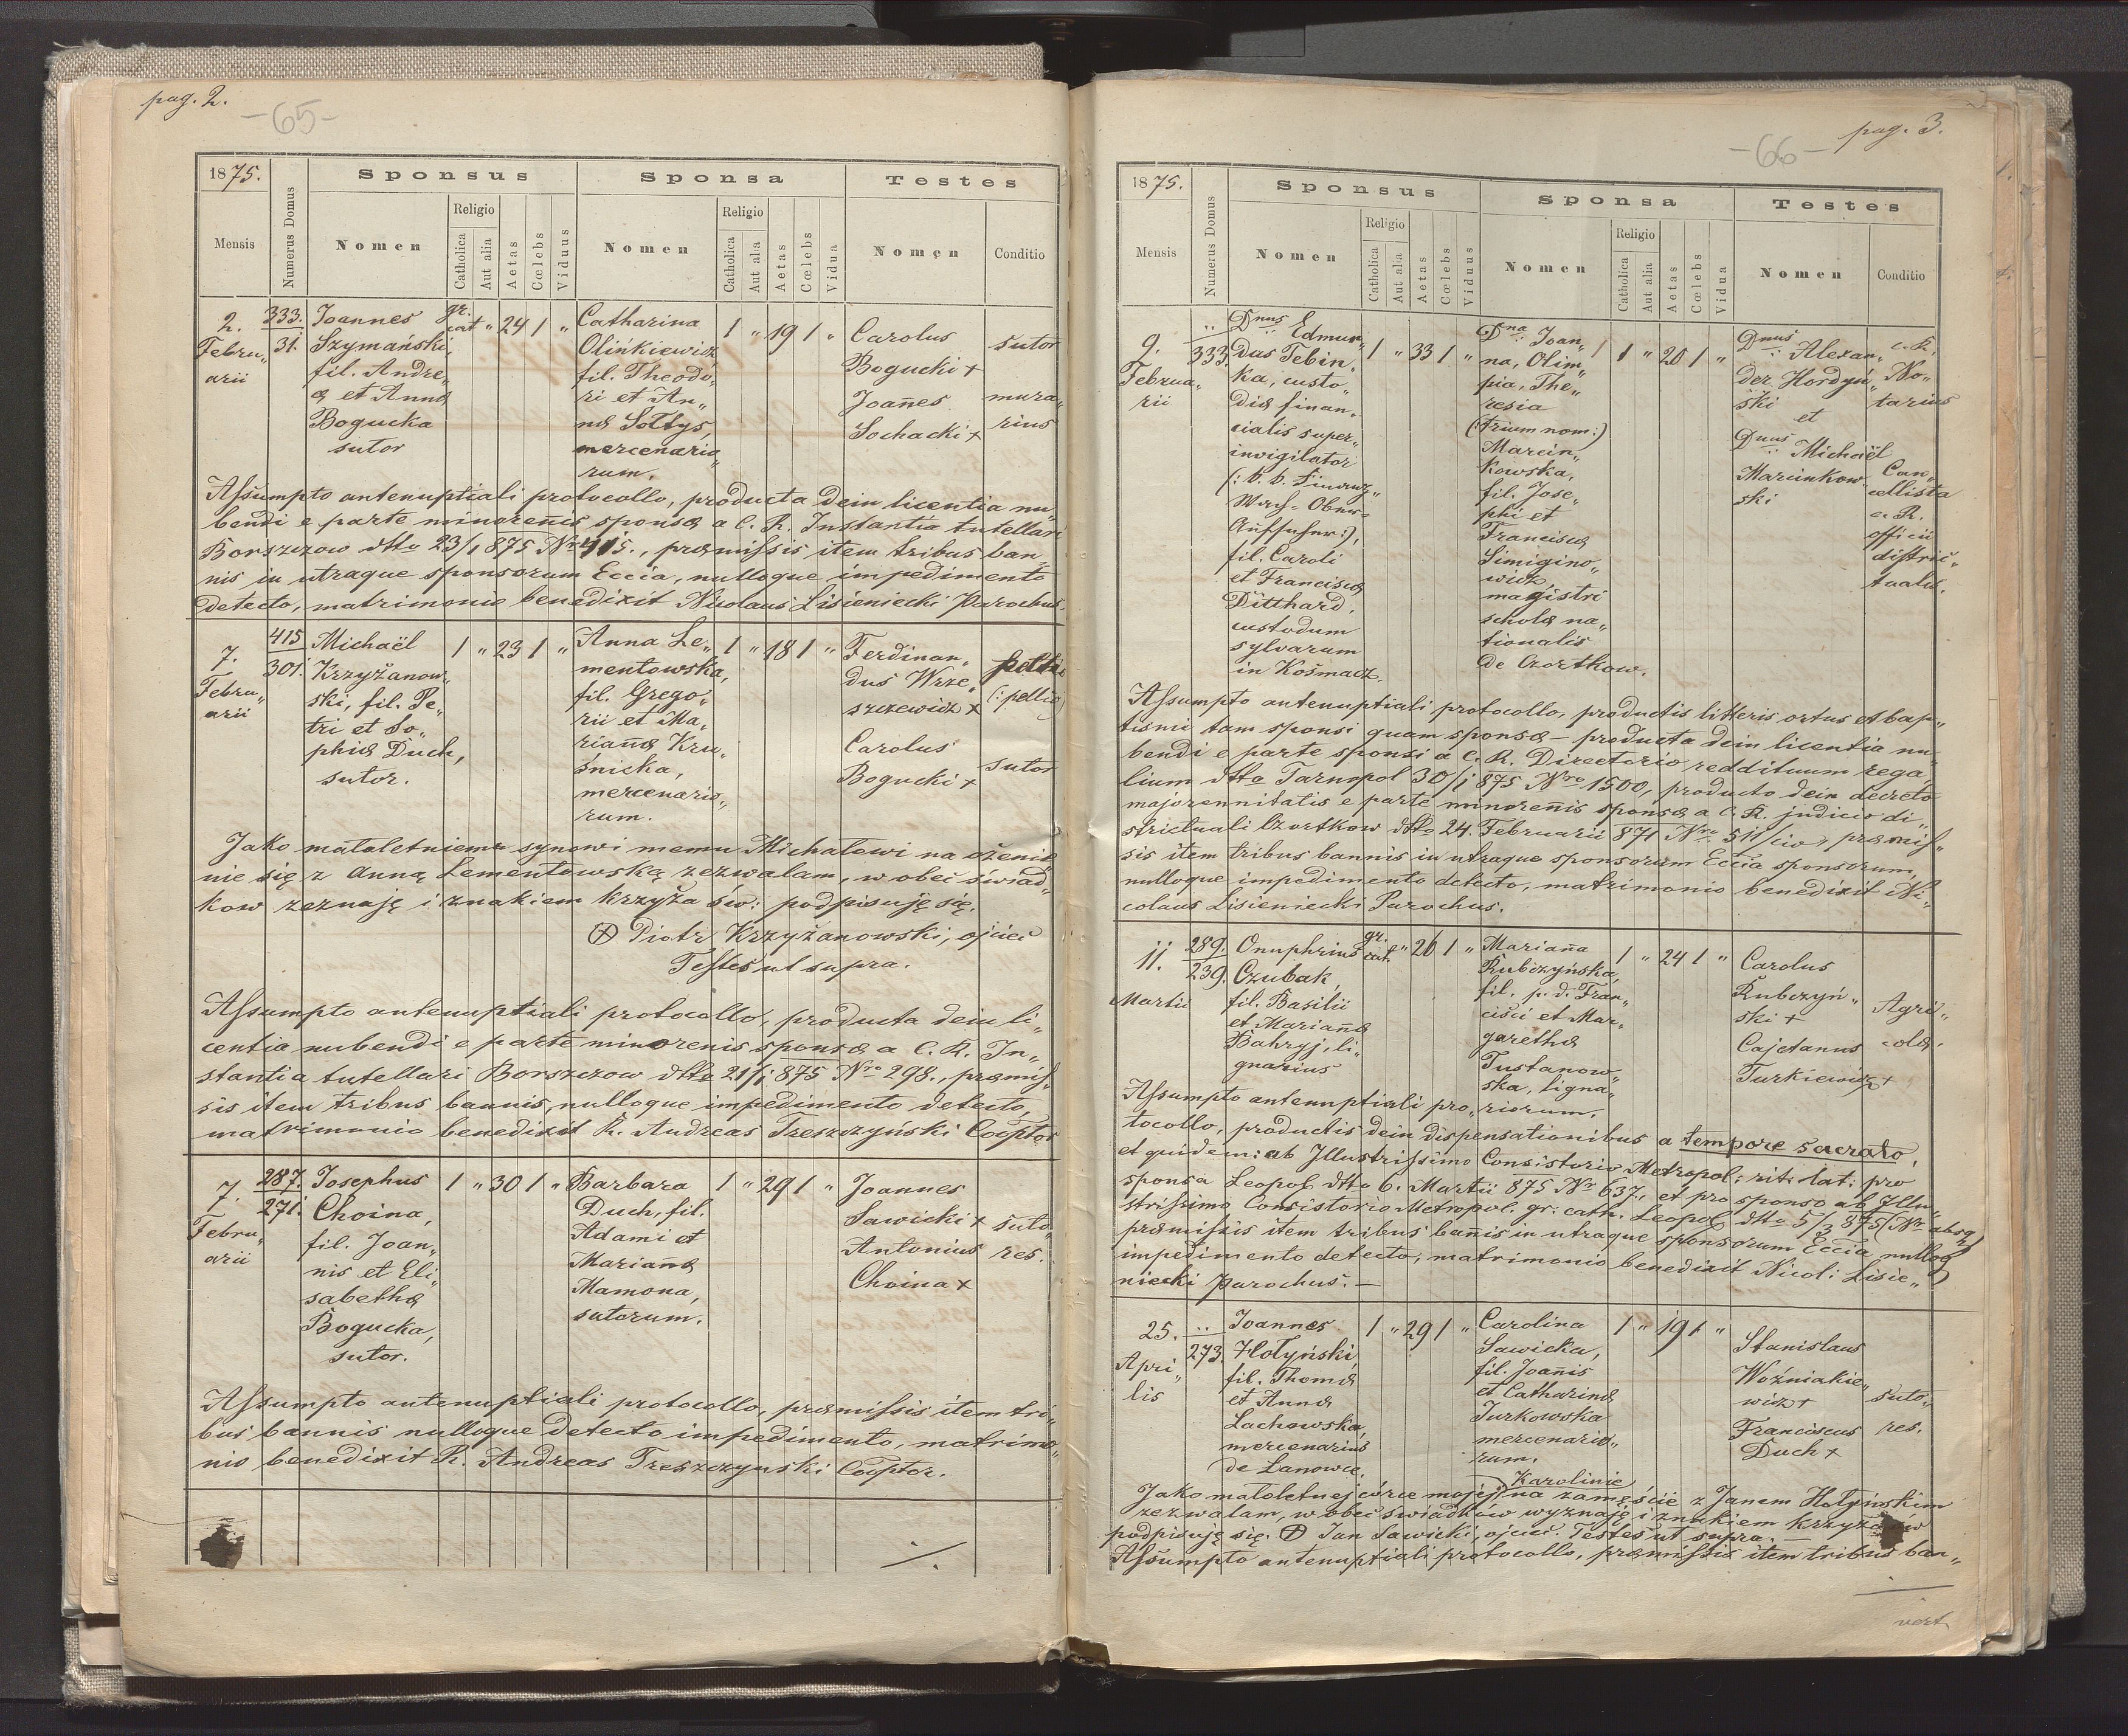 pag. 2.
-65-
1875.
Sponsus
Sponsa
Testes
Mensis
Numerus Domus
Nomen
Religio
Catholica
Aut alia
Aetas
Cœlebs
Viduus
Nomen
Religio
Catholica
Aut alia
Aetas
Cœlebs
Vidua
Nomen
Conditio
2.
Febru„
arii
333.
31.
Joannes
Szymański,
fil. Andre„
æ et Annæ
Bogucka
sutor
gr.
cat " 24 1 "
Catharina
Olińkiewicz,
fil. Theodo„
ri et An„
næ Sołtys,
mercenario„
rum.
1 " 19 1 "
Carolus
Bogucki +
Joañes
Sochacki +
sutor
mura„
rius
Assumpto antenuptiali protocollo, producta dein licentia nu„
bendi e parte minoreñis sponsæ a C. R. Instantia tutellari
Borszczow dtto 23/1 875 Nro 415., præmissis item tribus ban„
nis in utraque sponsorum Eccia, nulloque impedimento
detecto, matrimonio benedixit Nicolaus Lisieniecki Parochus.
7.
Febru„
arii
415
301.
Michaël
Krzyżanow„
ski, fil. Pe„
tri et So„
phiæ Duch,
sutor.
1 " 23 1 "
Anna Le„
mentowska,
fil. Grego„
rii et Ma„
riañæ Kru„
śnicka,
mercenario„
rum.
1 " 18 1 "
Ferdinan„
dus Wrze„
szczewicz +
Carolus
Bogucki +
(: pellio)
sutor
Jako małoletniemu synowi memu Michałowi na ożenie„
nie się z Anną Lementowską zezwalam, w obec świad„
kow zeznaję i znakiem krzyża św: podpisuję się.
⊕ Piotr Krzyżanowski, ojciec
Testes ut supra.
Assumpto antenuptiali protocollo, producta dein li„
centia nubendi e parte minorenis sponsæ a C. R. In„
stantia tutellari Borszczow dtto 21/1 875 Nro 298., præmis„
sis item tribus bannis, nulloque impedimento detecto,
matrimonio benedixit R. Andreas Treszczyński Cooptor
7.
Febru„
arii
287.
271.
Josephus
Choina,
fil. Joan„
nis et Eli„
sabethæ
Bogucka,
sutor.
1 " 30 1 "
Barbara
Duch, fil.
Adami et
Mariañæ
Mamona,
sutorum.
1 " 29 1 "
Joannes
Sawicki +
Antonius
Choina +
suto„
res.
Assumpto antenuptiali protocollo, præmissis item tri„
bus bannis nulloque detecto impedimento, matrimo„
nio benedixit R. Andreas Treszczynski Cooptor.
./.
pag. 3.
-66-
1875.
Sponsus
Sponsa
Testes
Mensis
Numerus Domus
Nomen
Religio
Catholica
Aut alia
Aetas
Cœlebs
Viduus
Nomen
Religio
Catholica
Aut alia
Aetas
Cœlebs
Vidua
Nomen
Conditio
9.
Februa„
rii
"
333.
Dnus Edmun„
dus Tebin„
ka, custo„
diæ finan„
cialis super„
invigilator
(: k. k. Finanz„
Wach-Ober-
Aufseher:),
fil. Caroli
et Franciscæ
Ditthard,
custodum
sylvarum
in Kosmacz.
1 " 33 1 "
Dna Joan„
na, Olim„
pia, The„
resia
(: trium nom:)
Marcin„
kowska,
fil. Jose„
phi et
Franciscæ
Simigino„
wicz,
magistri
scholæ na„
tionalis
de Czortkow.
1 " 20 1 "
Dnus Alexan„
der Hordyń„
ski
et
Dnus Michaël
Marcinkow„
ski
c. R.
No„
tarius
Can„
cellista
c. R.
officii
distric„
tualis.
Assumpto antenuptiali protocollo, productis litteris ortus et bap„
tismi tam sponsi quam sponsæ - producta dein licentia nu„
bendi e parte sponsi a C. R. Directorio reddituum rega„
lium dtto Tarnopol 30/1 875 Nro 1500, producto dein decreto
majorennitatis e parte minoreñis sponsæ a C. R. judicio di„
strictuali Czortkow dtto 24. Februarii 871 Nro 511/civ, præmis„
sis item tribus bannis in utraque sponsorum Eccia sponsorum,
nulloque impedimento detecto, matrimonio benedixit Ni„
colaus Lisieniecki Parochus.
11.
Martii
289.
239.
Onuphrius
Czubak,
fil. Basilii
et Mariañæ
Bahryj, li„
gnarius
gr.
cat. " 26 1 "
Mariaña
Rubczyńska,
fil. p. d. Fran„
cisci et Mar„
garethæ
Tustanow„
ska, ligna„
riorum.
1 " 24 1 "
Carolus
Rubczyń„
ski +
Cajetanus
Turkiewicz +
Agri„
colæ.
Assumpto antenuptiali pro„
tocollo, productis dein dispensationibus a tempore sacrato,
et quidem: ab Illustrissimo Consistorio Metropol: rit: lat: pro
sponsa Leopol dtto 6. Martii 875 Nro 637., et pro sponso ab Illu„
strissimo Consistorio Metropol. gr: cath. Leopol dtto 5/3 875 (Nr absq)
præmissis item tribus bañis in utraque sponsorum Eccia nulloq
impedimento detecto, matrimonio benedixit Nicol: Lisie„
niecki Parochus. -
25.
Apri„
lis
"
273.
Joannes
Hołyński,
fil. Thomæ
et Annæ
Lachowska,
mercenarius
de Lanowce.
1 " 29 1 "
Carolina
Sawicka,
fil. Joañis
et Catharinæ
Jurkowska
mercenario„
rum.
1 " 19 1 "
Stanislaus
Woźniakie„
wicz +
Franciscus
Duch +
suto„
res.
Karolinie
Jako małoletnej córce mojej na zamęście z Janem Hołyńskim
zezwalam, w obec świadków wyznaję i znakiem krzyża św
podpisuję się. ⊕ Jan Sawicki, ojciec. Testes ut supra. -
Assumpto antenuptiali protocollo, præmissis item tribus ban„
vert